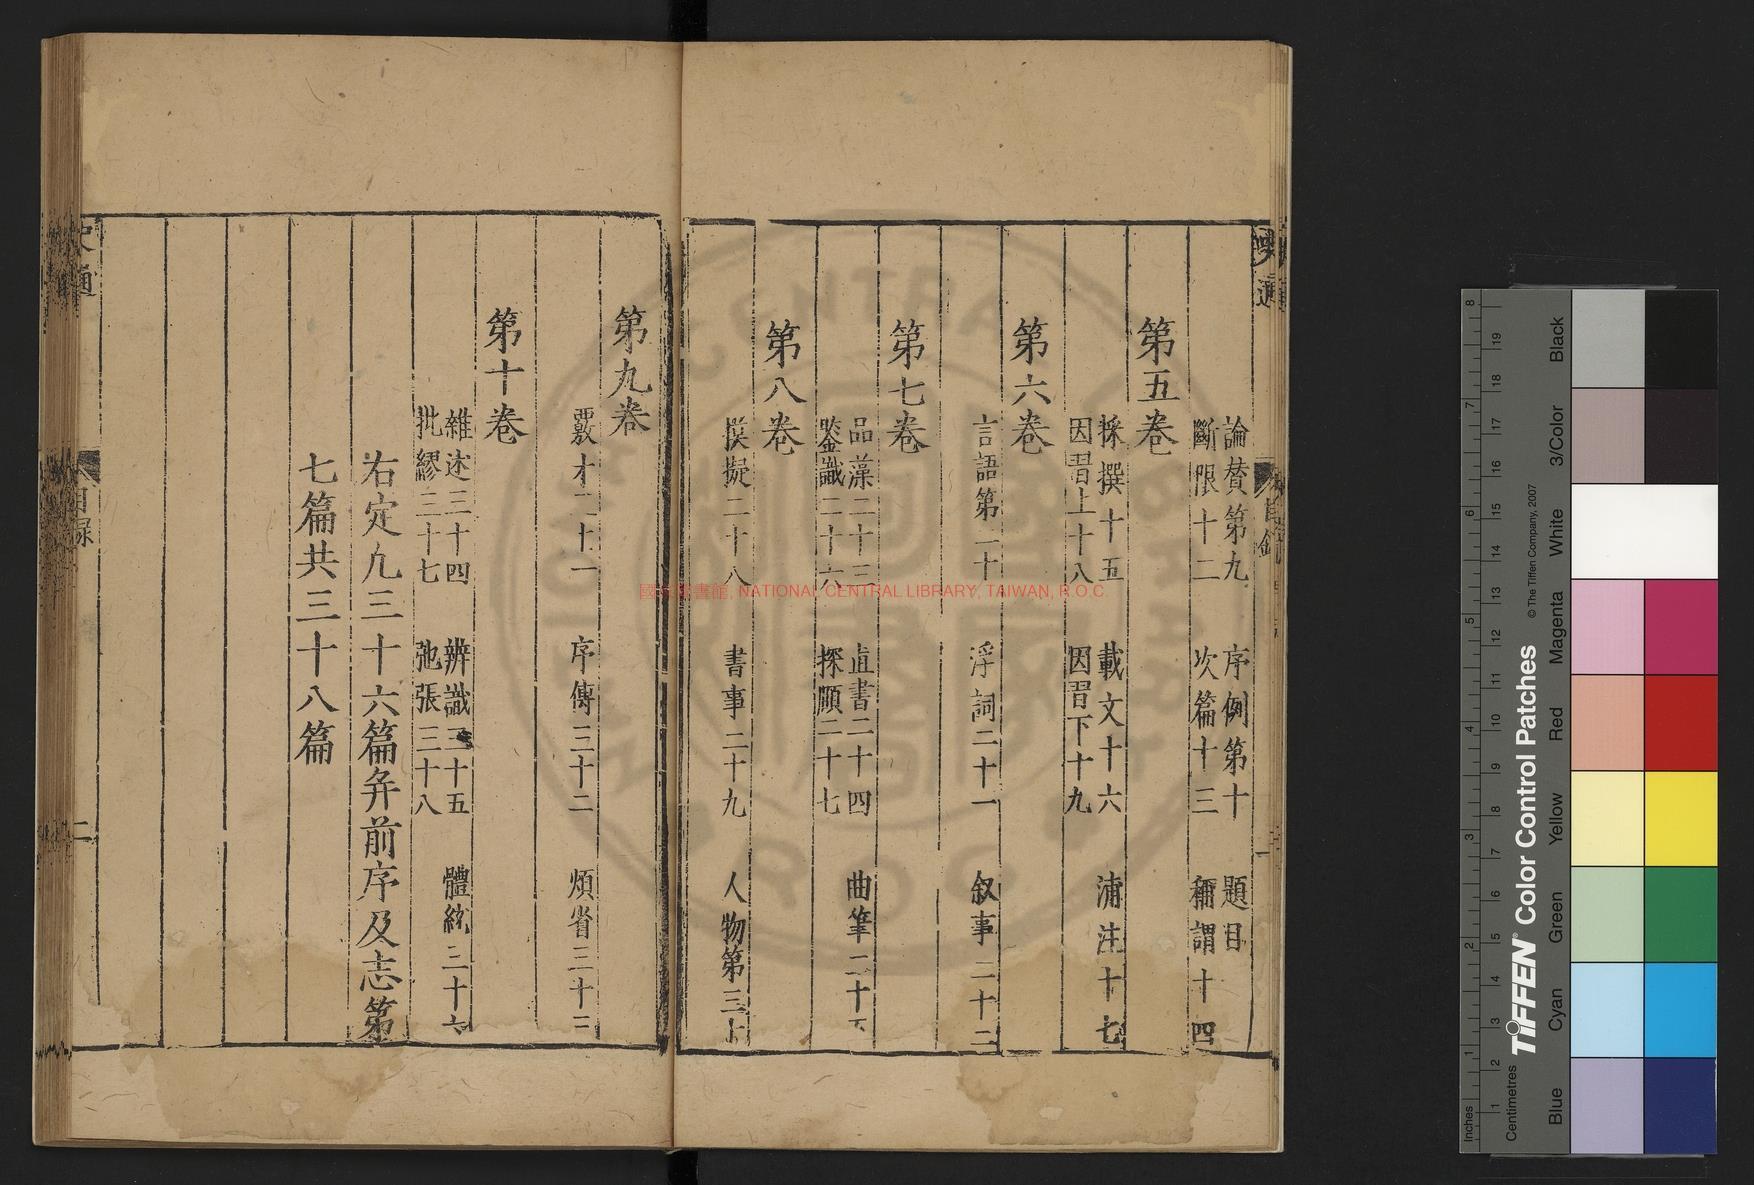 論贊第九　序例第十　題目
斷限十二　次篇十三　稱謂十四
第五卷
採撰十五　載文十六　浦注十七
因習上十八　因習下十九
第六卷
言語第二十　浮詞二十一　叙事二十二
第七卷
品藻二十三　直書二十四　曲筆二十五
鑒識二十六　探賾二十七
第八卷
摸擬二十八　書事二十九　人物第三十
第九卷
覈才三十一　序傳三十二　煩省三十三
第十卷
雜述三十四　辨識三十五　體統三十六
批繆三十七　弛張三十八
右定凡三十六篇并前序及志第
七篇共三十八篇
史通
目録
二
國家圖書館, NATIONAL CENTRAL LIBRARY, TAIWAN, R.O.C.
Inches
Centimetres
TIFFEN® Color Control Patches
© The Tiffen Company, 2007
Blue
Cyan
Green
Yellow
Red
Magenta
White
3/Color
Black